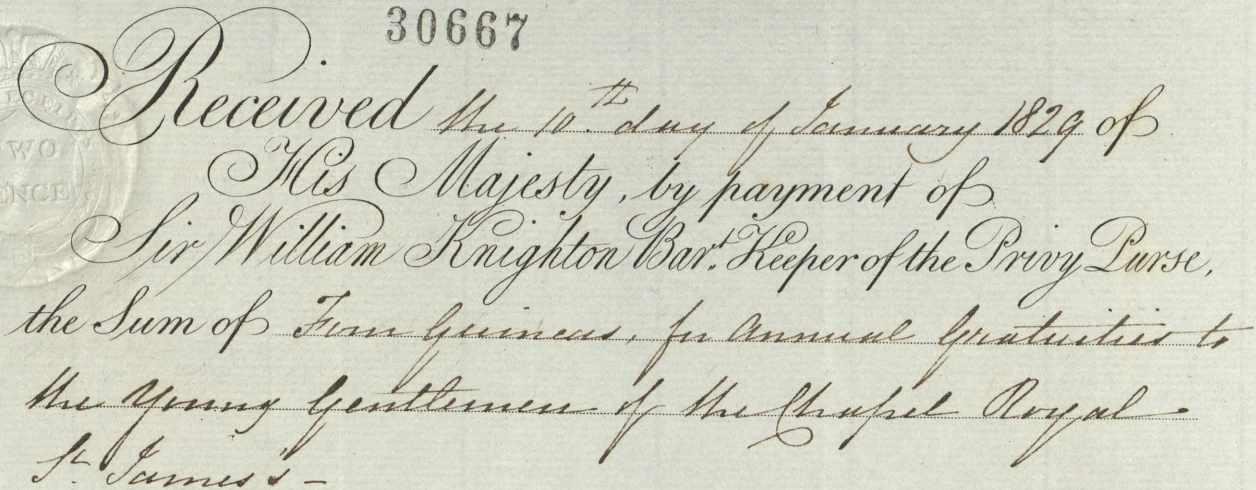 30667
Received the 10.th day of January 1829 of
His Majesty, by payment of
Sir William Knighton Bar.t Keeper of the Privy Purse,
the Sum of Four Guineas, for Annual Gratuities to
the Young Gentlemen of the Chapel Royal
St. James's -
WO
ENCE